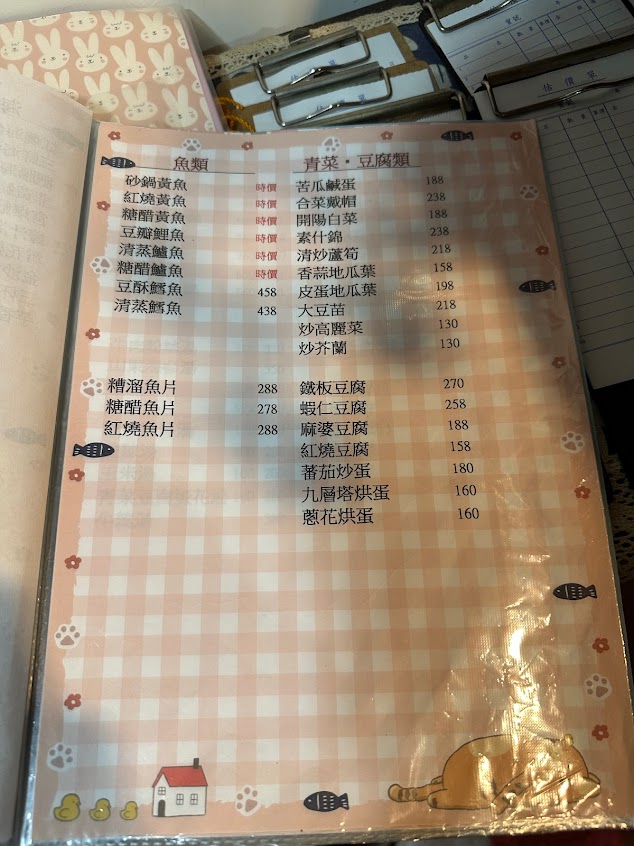 估價單
估價單
魚類
砂鍋黃魚 時價
紅燒黃魚 時價
糖醋黃魚 時價
豆瓣鯉魚 時價
清蒸鱸魚 時價
糖醋鱸魚 時價
豆酥鱈魚 458
清蒸鱈魚 438
糟溜魚片 288
糖醋魚片 278
紅燒魚片 288
青菜·豆腐類
苦瓜鹹蛋 188
合菜戴帽 238
開陽白菜 188
素什錦 238
清炒蘆筍 218
香蒜地瓜葉 158
皮蛋地瓜葉 198
大豆苗 218
炒高麗菜 130
炒芥蘭 130
鐵板豆腐 270
蝦仁豆腐 258
麻婆豆腐 188
紅燒豆腐 158
蕃茄炒蛋 180
九層塔烘蛋 160
蔥花烘蛋 160